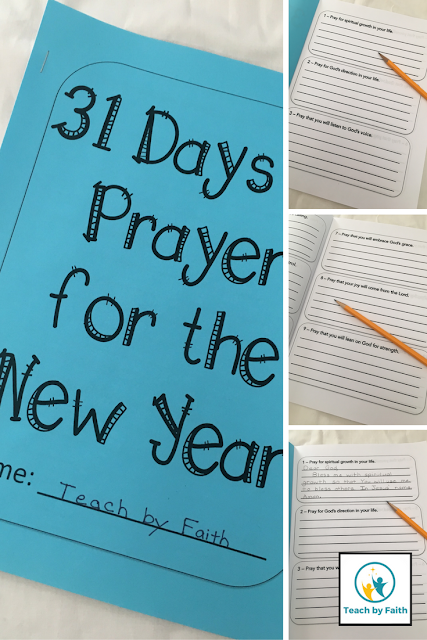 31 Days
Prayer
for the
New Year
me: Teach by Faith
1 – Pray for spiritual growth in your life.
2 – Pray for God's direction in your life.
3 – Pray that you will listen to God's voice.
7 – Pray that you will embrace God's grace.
8 – Pray that your joy will come from the Lord.
9 – Pray that you will lean on God for strength.
1 – Pray for spiritual growth in your life.
Dear God,
Bless me with spiritual
growth so that You will use me
to bless others. In Jesus name
Amen.
2 – Pray for God's direction in your life.
3 – Pray that you
Teach by Faith